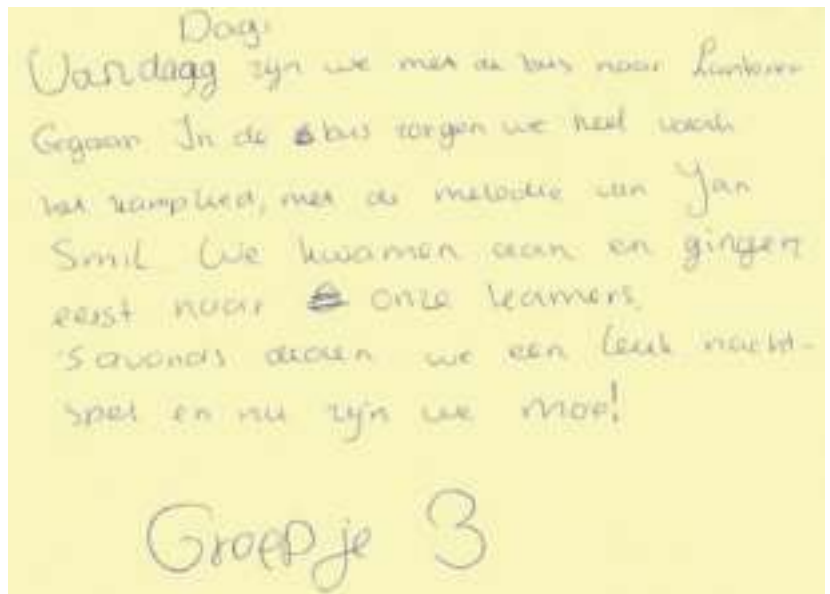 Dag.
Vandagg zijn we met de bus naar
Gegaan In de bus zongen we heel vaak
het kamplied, met de melodie van Jan
Smit We kwamen aan en gingen
eerst naar onze kamers.
's avonds deden we een leuk nacht-
spel en nu zijn we moe!
Groepje 3